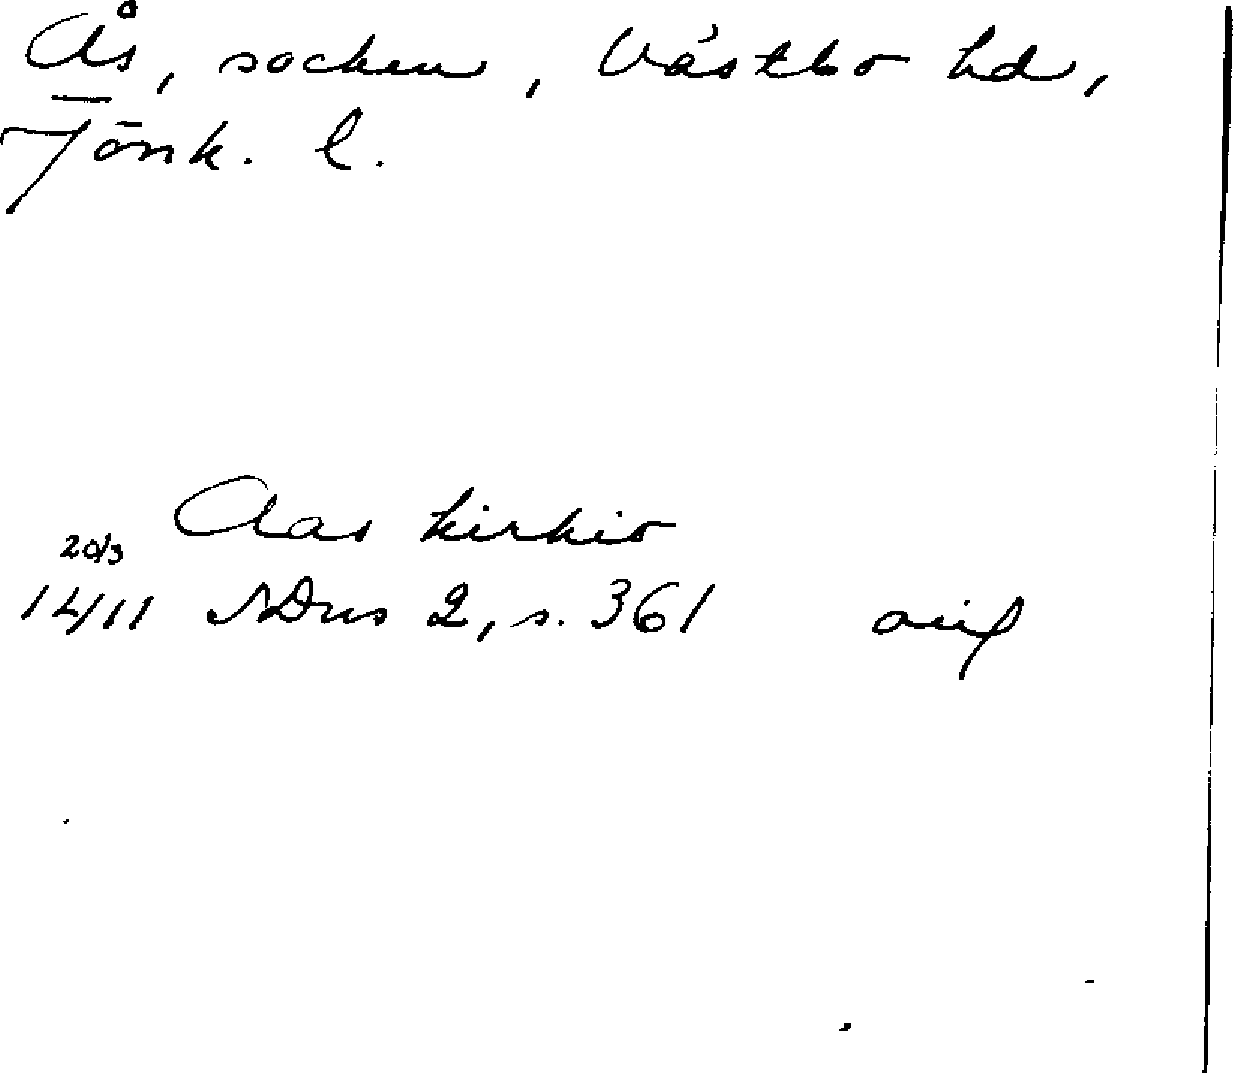 Ås, socken, Västbo hd,
Jönk. l.
Aas kirkio
20/3
1411 SDns 2, s. 361 avig